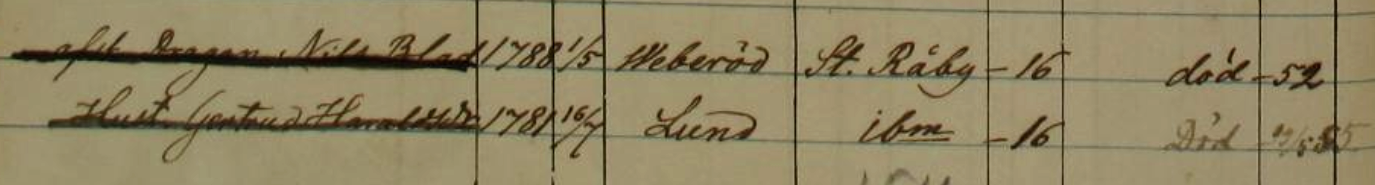 afsk. Dragon Nils Blad 1788 1/5 Weberöd St. Råby -16 död -52
Hust. Gertrud Haraldsdr 1781 16/7 Lund ibm -16 Död